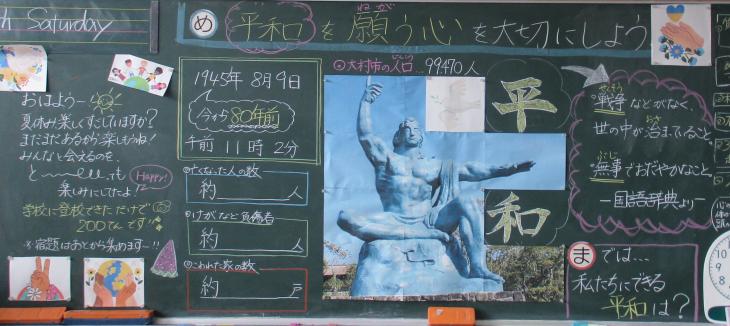 Saturday
おはよう〜
夏休み楽しくすごしていますか?
まだまだあるから楽しもうね!
みんなと会えるのを、
と〜〜〜っても
楽しみにしてたよ!
Happy!
学校に登校できただけで
200てんです
※宿題はあとから集めます〜!!
め
平和を願う心を大切にしよう
ねが
1945年 8月9日
今から80年前
午前 11時 2分
亡くなった人の数
約 人
けがなど負傷者
約 人
こわれた家の数
約 戸
大村市の人口…99,470人
じんこう
平
和
せんそう
戦争などがなく、
おさ
世の中が治まっていること。
ぶじ
無事でおだやかなこと。
―国語辞典より―
ま では…
私たちにできる
平和は?